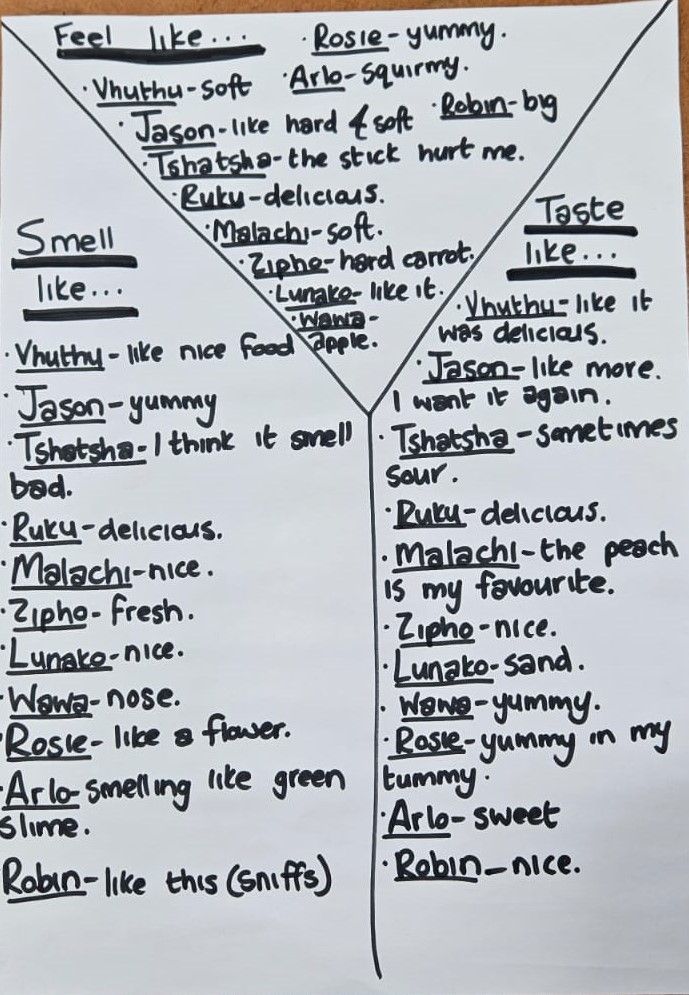 Feel like...
· Rosie - yummy.
· Vhuthu - soft
· Arlo - squirmy.
· Jason - like hard & soft
· Robin - big
· Tshatsha - the stick hurt me.
· Ruku - delicious.
· Malachi - soft.
· Zipho - hard carrot.
· Lunako - like it.
· Wawa -
apple.
Smell
like...
· Vhuthu - like nice food
· Jason - yummy
· Tshatsha - I think it smell
bad.
· Ruku - delicious.
· Malachi - nice.
· Zipho - fresh.
· Lunako - nice.
· Wawa - nose.
· Rosie - like a flower.
· Arlo - smelling like green
slime.
Robin - like this (sniffs)
Taste
like...
· Vhuthu - like it
was delicious.
· Jason - like more.
I want it again.
· Tshatsha - sometimes
sour.
· Ruku - delicious.
· Malachi - the peach
is my favourite.
· Zipho - nice.
· Lunako - sand.
· Wawa - yummy.
· Rosie - yummy in my
tummy.
· Arlo - sweet
· Robin - nice.